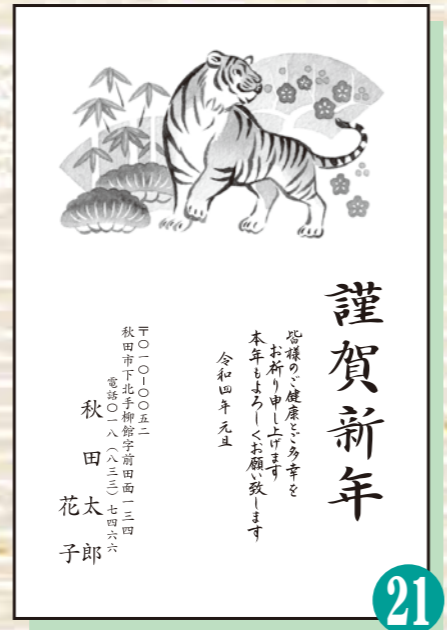 謹賀新年
皆様のご健康とご多幸を
お祈り申し上げます
本年もよろしくお願い致します
令和四年 元旦
〒〇一〇-〇〇五二
秋田市下北手柳館字前田面一三四
電話〇一八（八三三）七四六六
秋田太郎
花子
21